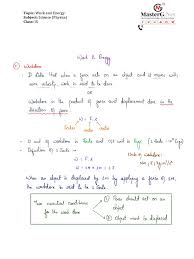 Topic: Work and Energy
Subject: Science (Physics)
Class: IX
MasterG
Work & Energy
Workdone
It states that when a force acts on an object and it moves with
some velocity, work is said to be done
OR
Workdone is the product of force and displacement done in
the direction of force
W = F . s
S.I unit of workdone is Joule and CGS unit is Ergs
Definition of 1 Joule
W = F . s
When an object is displaced by 1m by applying a force of 1N,
the workdone is said to be 1 Joule.
Two essential conditions
for the work done
Force should act on an
object
Object must be displaced